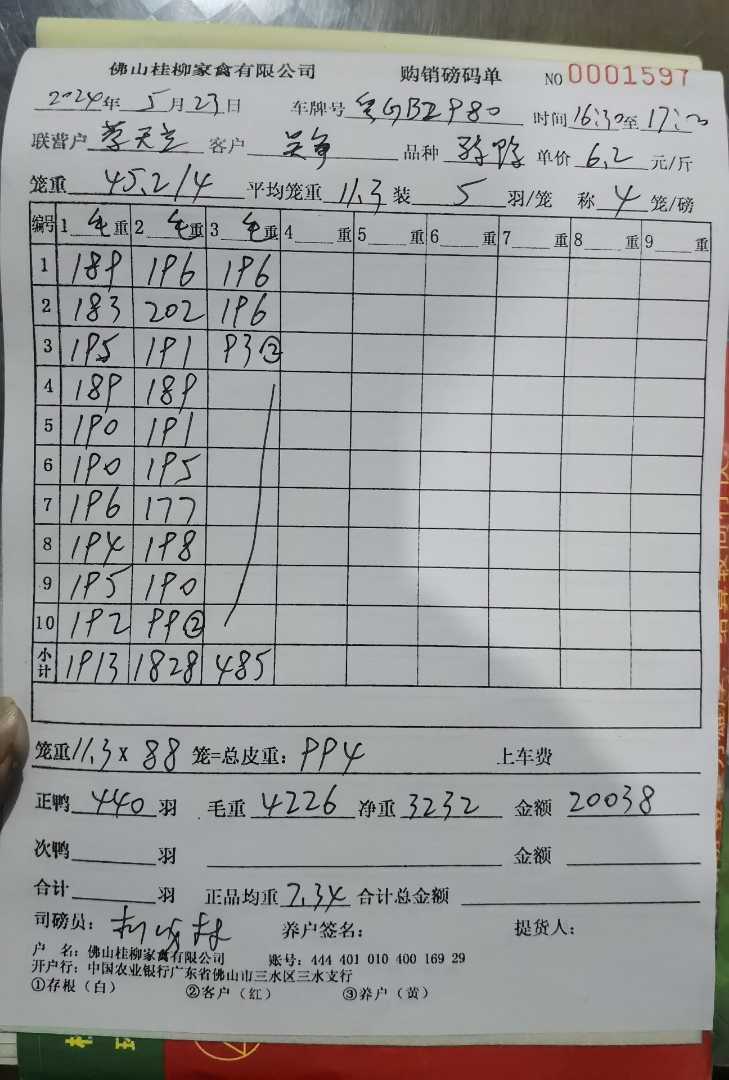 佛山桂柳家禽有限公司 购销磅码单 NO 0001597
2024年5月23日 车牌号 GBZ980 时间16:30至17:20
联营户 客户 品种 单价6.2元/斤
笼重45.2/4 平均笼重11.3 装5羽/笼 称4笼/磅
编号 1毛重 2毛重 3毛重 4 重 5 重 6 重 7 重 8 重 9 重
1 189 196 196
2 183 202 196
3 195 191 93②
4 189 189
5 190 191
6 190 195
7 196 177
8 194 198
9 195 190
10 192 99②
小计 1913 1828 485
笼重11.3×88笼=总皮重:994 上车费
正鸭440羽 毛重4226 净重3232 金额20038
次鸭 羽 金额
合计 羽 正品均重7.34 合计总金额
司磅员: 养户签名: 提货人:
户 名:佛山桂柳家禽有限公司 账号:444 401 010 400 169 29
开户行:中国农业银行广东省佛山市三水区三水支行
①存根(白) ②客户(红) ③养户(黄)